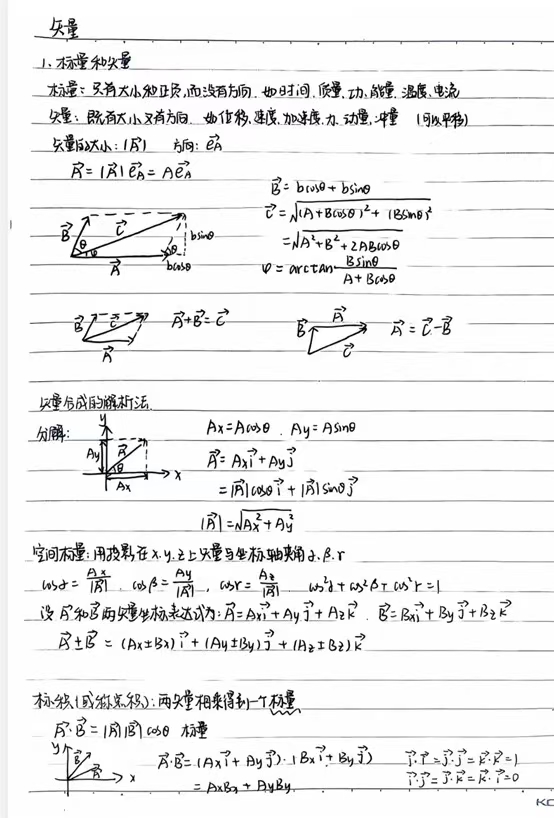 矢量
1、标量和矢量
标量：只有大小和正负,而没有方向. 如时间.质量.功.能量.温度.电流
矢量：既有大小又有方向. 如位移.速度.加速度.力.动量.冲量 (可以平移)
矢量的大小：|A⃗| 方向：e⃗A
A⃗=|A⃗|e⃗A=Ae⃗A
B⃗=bcosθ+bsinθ
C⃗=√((A+Bcosθ)²+(Bsinθ)²)
=√(A²+B²+2ABcosθ)
φ=arctan Bsinθ/(A+Bcosθ)
B⃗ C⃗ θ φ A⃗ θ bsinθ bcosθ
B⃗ C⃗ A⃗ A⃗+B⃗=C⃗ B⃗ A⃗ C⃗ A⃗=C⃗-B⃗
矢量合成的解析法.
分解：
y Ay A⃗ θ Ax x
Ax=Acosθ . Ay=Asinθ
A⃗=Axi⃗+Ayj⃗
=|A⃗|cosθi⃗+|A⃗|sinθj⃗
|A⃗|=√(Ax²+Ay²)
空间标量：用投影在x.y.z上矢量与坐标轴夹角α.β.γ
cosα=Ax/|A⃗| . cosβ=Ay/|A⃗| , cosγ=Az/|A⃗| cos²α+cos²β+cos²γ=1
设A⃗和B⃗两矢量坐标表达式为：A⃗=Axi⃗+Ayj⃗+Azk⃗ . B⃗=Bxi⃗+Byj⃗+Bzk⃗
A⃗±B⃗=(Ax±Bx)i⃗+(Ay±By)j⃗+(Az±Bz)k⃗
标积(或称点积)：两矢量相乘得到一个标量
A⃗·B⃗=|A⃗||B⃗|cosθ 标量
y B⃗ A⃗ x
A⃗·B⃗=(Axi⃗+Ayj⃗)·(Bxi⃗+Byj⃗) i⃗·i⃗=j⃗·j⃗=k⃗·k⃗=1
=AxBx+AyBy i⃗·j⃗=j⃗·k⃗=k⃗·i⃗=0